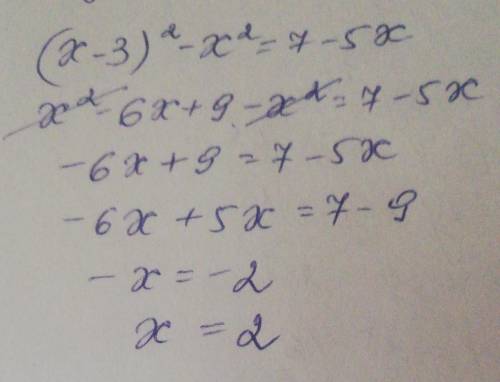 (x-3)²-x²=7-5x
x²-6x+9-x²=7-5x
-6x+9=7-5x
-6x+5x=7-9
-x=-2
x=2